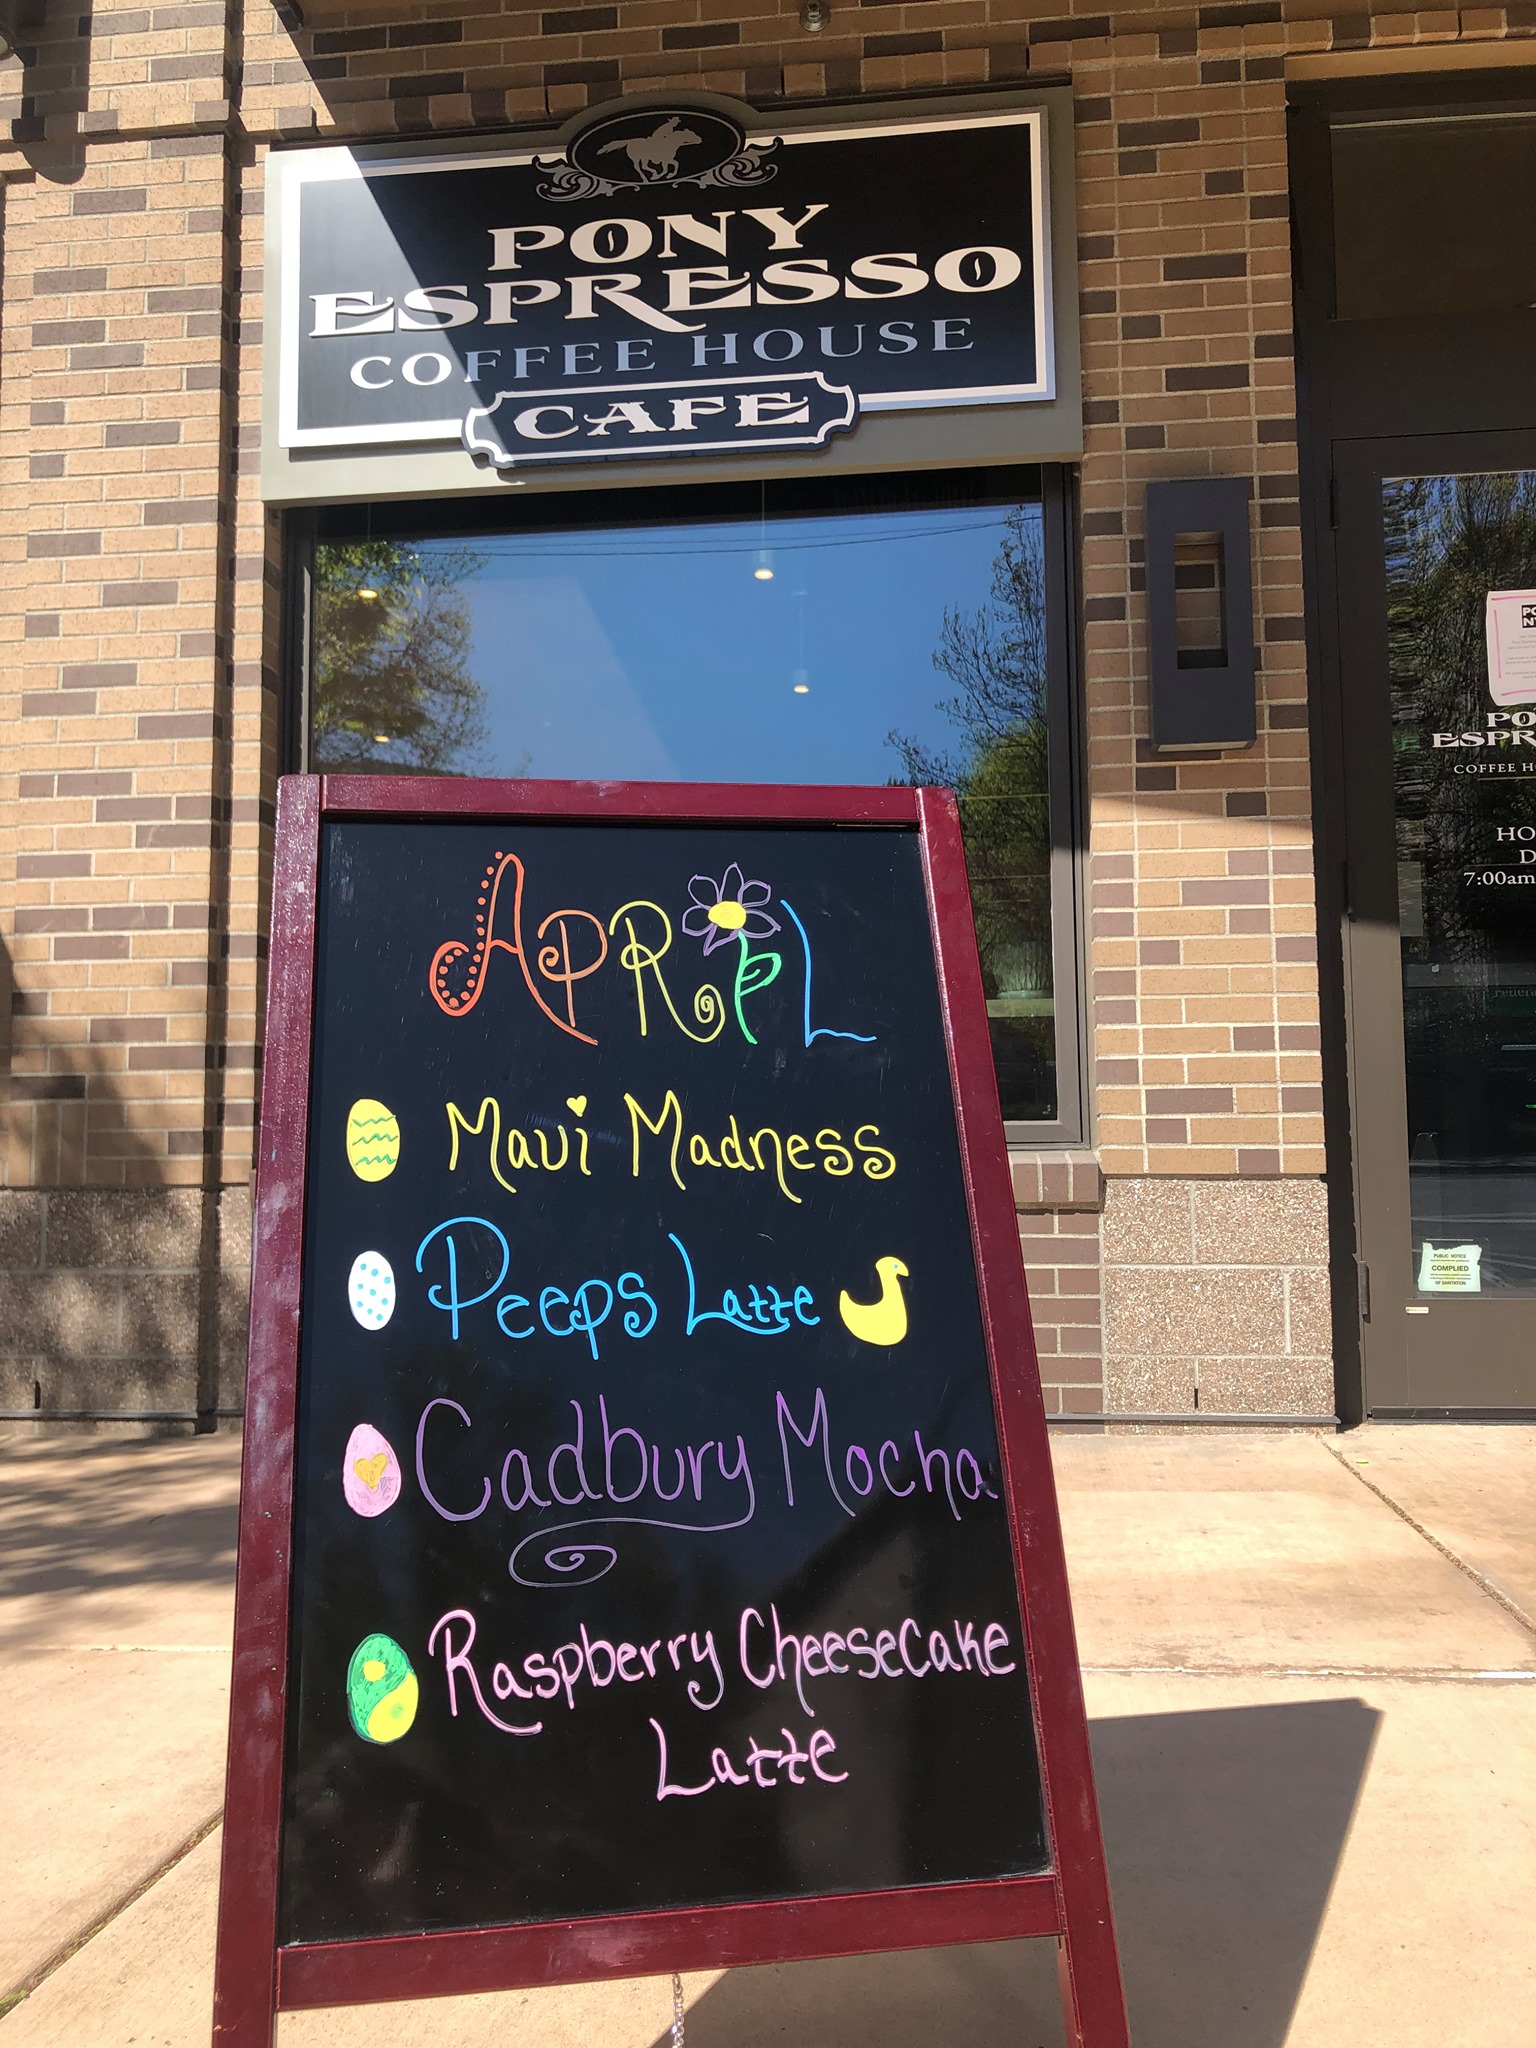 PONY
ESPRESSO
COFFEE HOUSE
CAFE
APRIL
Maui Madness
Peeps Latte
Cadbury Mocha
Raspberry CheeseCake
Latte
PO
ESPR
COFFEE H
HO
D
7:00am
PUBLIC NOTICE
COMPLIED
OF SANITATION